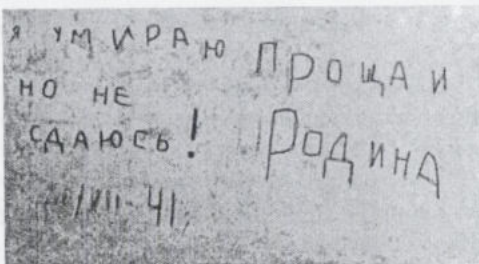 Я УМИРАЮ
НО НЕ
СДАЮСЬ!
ПРОЩАИ
РОДИНА
/VII-41